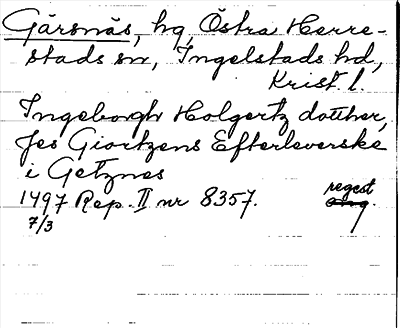 Gärsnäs, hg, Östra Herre-
stads sn, Ingelstads hd,
Krist. l.
Ingeborgh Holgertz dotther,
Jes Giortzens Efterleverske
i Getznes
1497 Rep. II nr 8357. regest
7/3